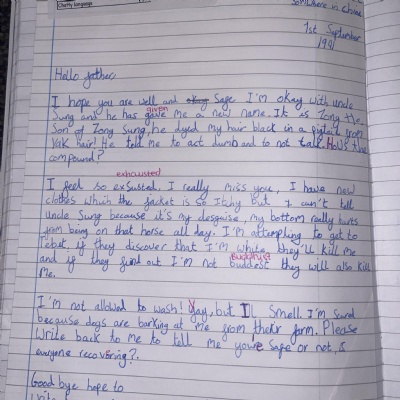 Charity language.
Somewhere in china
1st September
1991
Hello father
I hope you are well and okay Safe I'm okay with uncle
given
Sung and he has gave me a new name. It is Zong the
Son of Zong Sung, he dyed my hair black in a pigtail from
yak hair! He told me to act dumb and to not talk. How's the
compound?
exhausted
I feel so exsusted. I really miss you, I have new
clothes which the jacket is so itchy but I can't tell
Uncle Sung because it's my desguise, my bottom really hurts
from being on that horse all day. I'm attempting to get to
Tebet, if they discover that I'm white they'll kill me
Buddhist
and if they find out I'm not buddest they will also kill
me.
I'm not allowed to wash! Yay, but I Smell. I'm Surd
because dogs are barking at me from their farm. Please
Write back to me to tell me you're Safe or not, &
everyone recovering?.
Good bye hope to